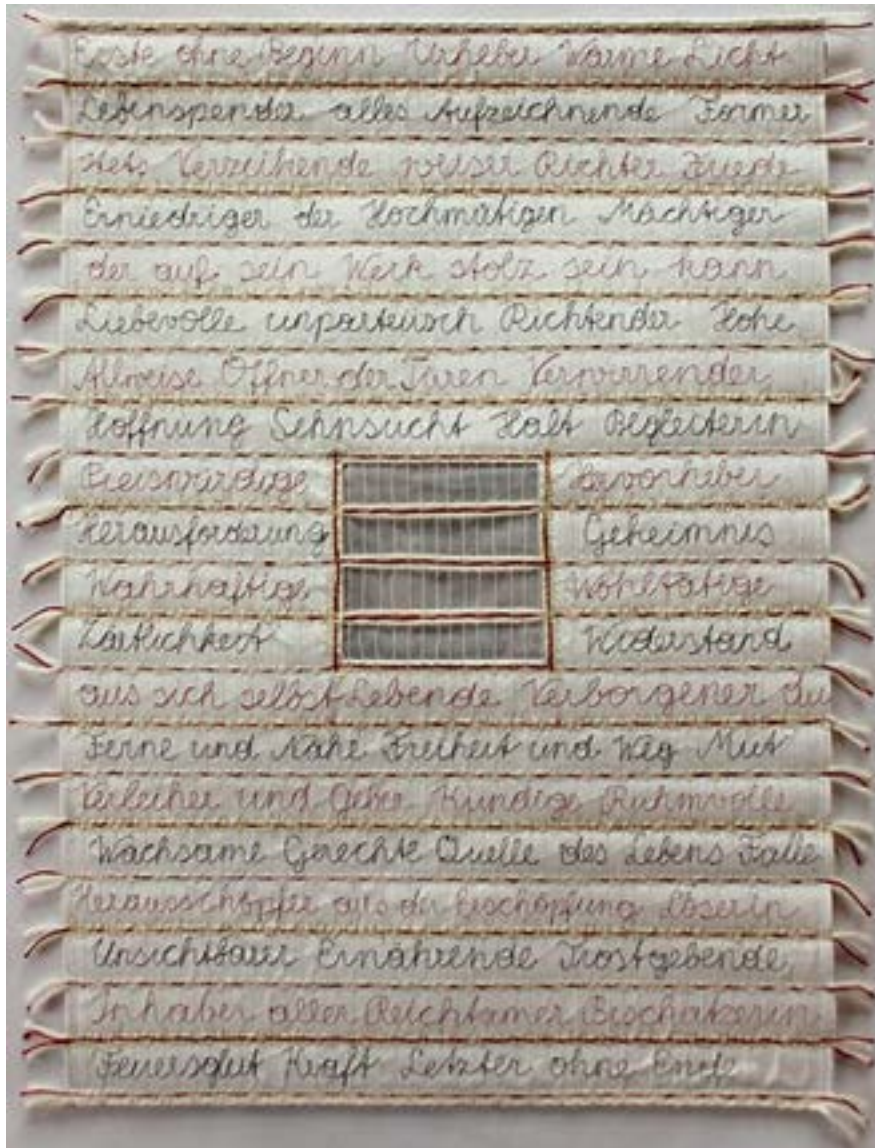 Erste ohne Beginn Urheber Wärme Licht
Lebenspender alles Aufzeichnende Former
stets Verzeihende weiser Richter Friede
Erniedriger der Hochmütigen Mächtiger
der auf sein Werk stolz sein kann
Liebevolle unparteiisch Richtender Hohe
Allweise Öffner der Türen Verwirrender
Hoffnung Sehnsucht Halt Begleiterin
Preiswürdige Hervorheber
Herausforderung Geheimnis
Wahrhaftige Wohltätige
Zärtlichkeit Widerstand
aus sich selbst Lebende Verborgener du
Ferne und Nähe Freiheit und Weg Mut
Verleiher und Geber Kundige Ruhmvolle
Wachsame Gerechte Quelle des Lebens Falle
Herausschöpfer aus der Erschöpfung Löserin
Unsichtbarer Ernährende Trostgebende
Inhaber aller Reichtümer Beschützerin
Feuersglut Kraft Letzter ohne Ende